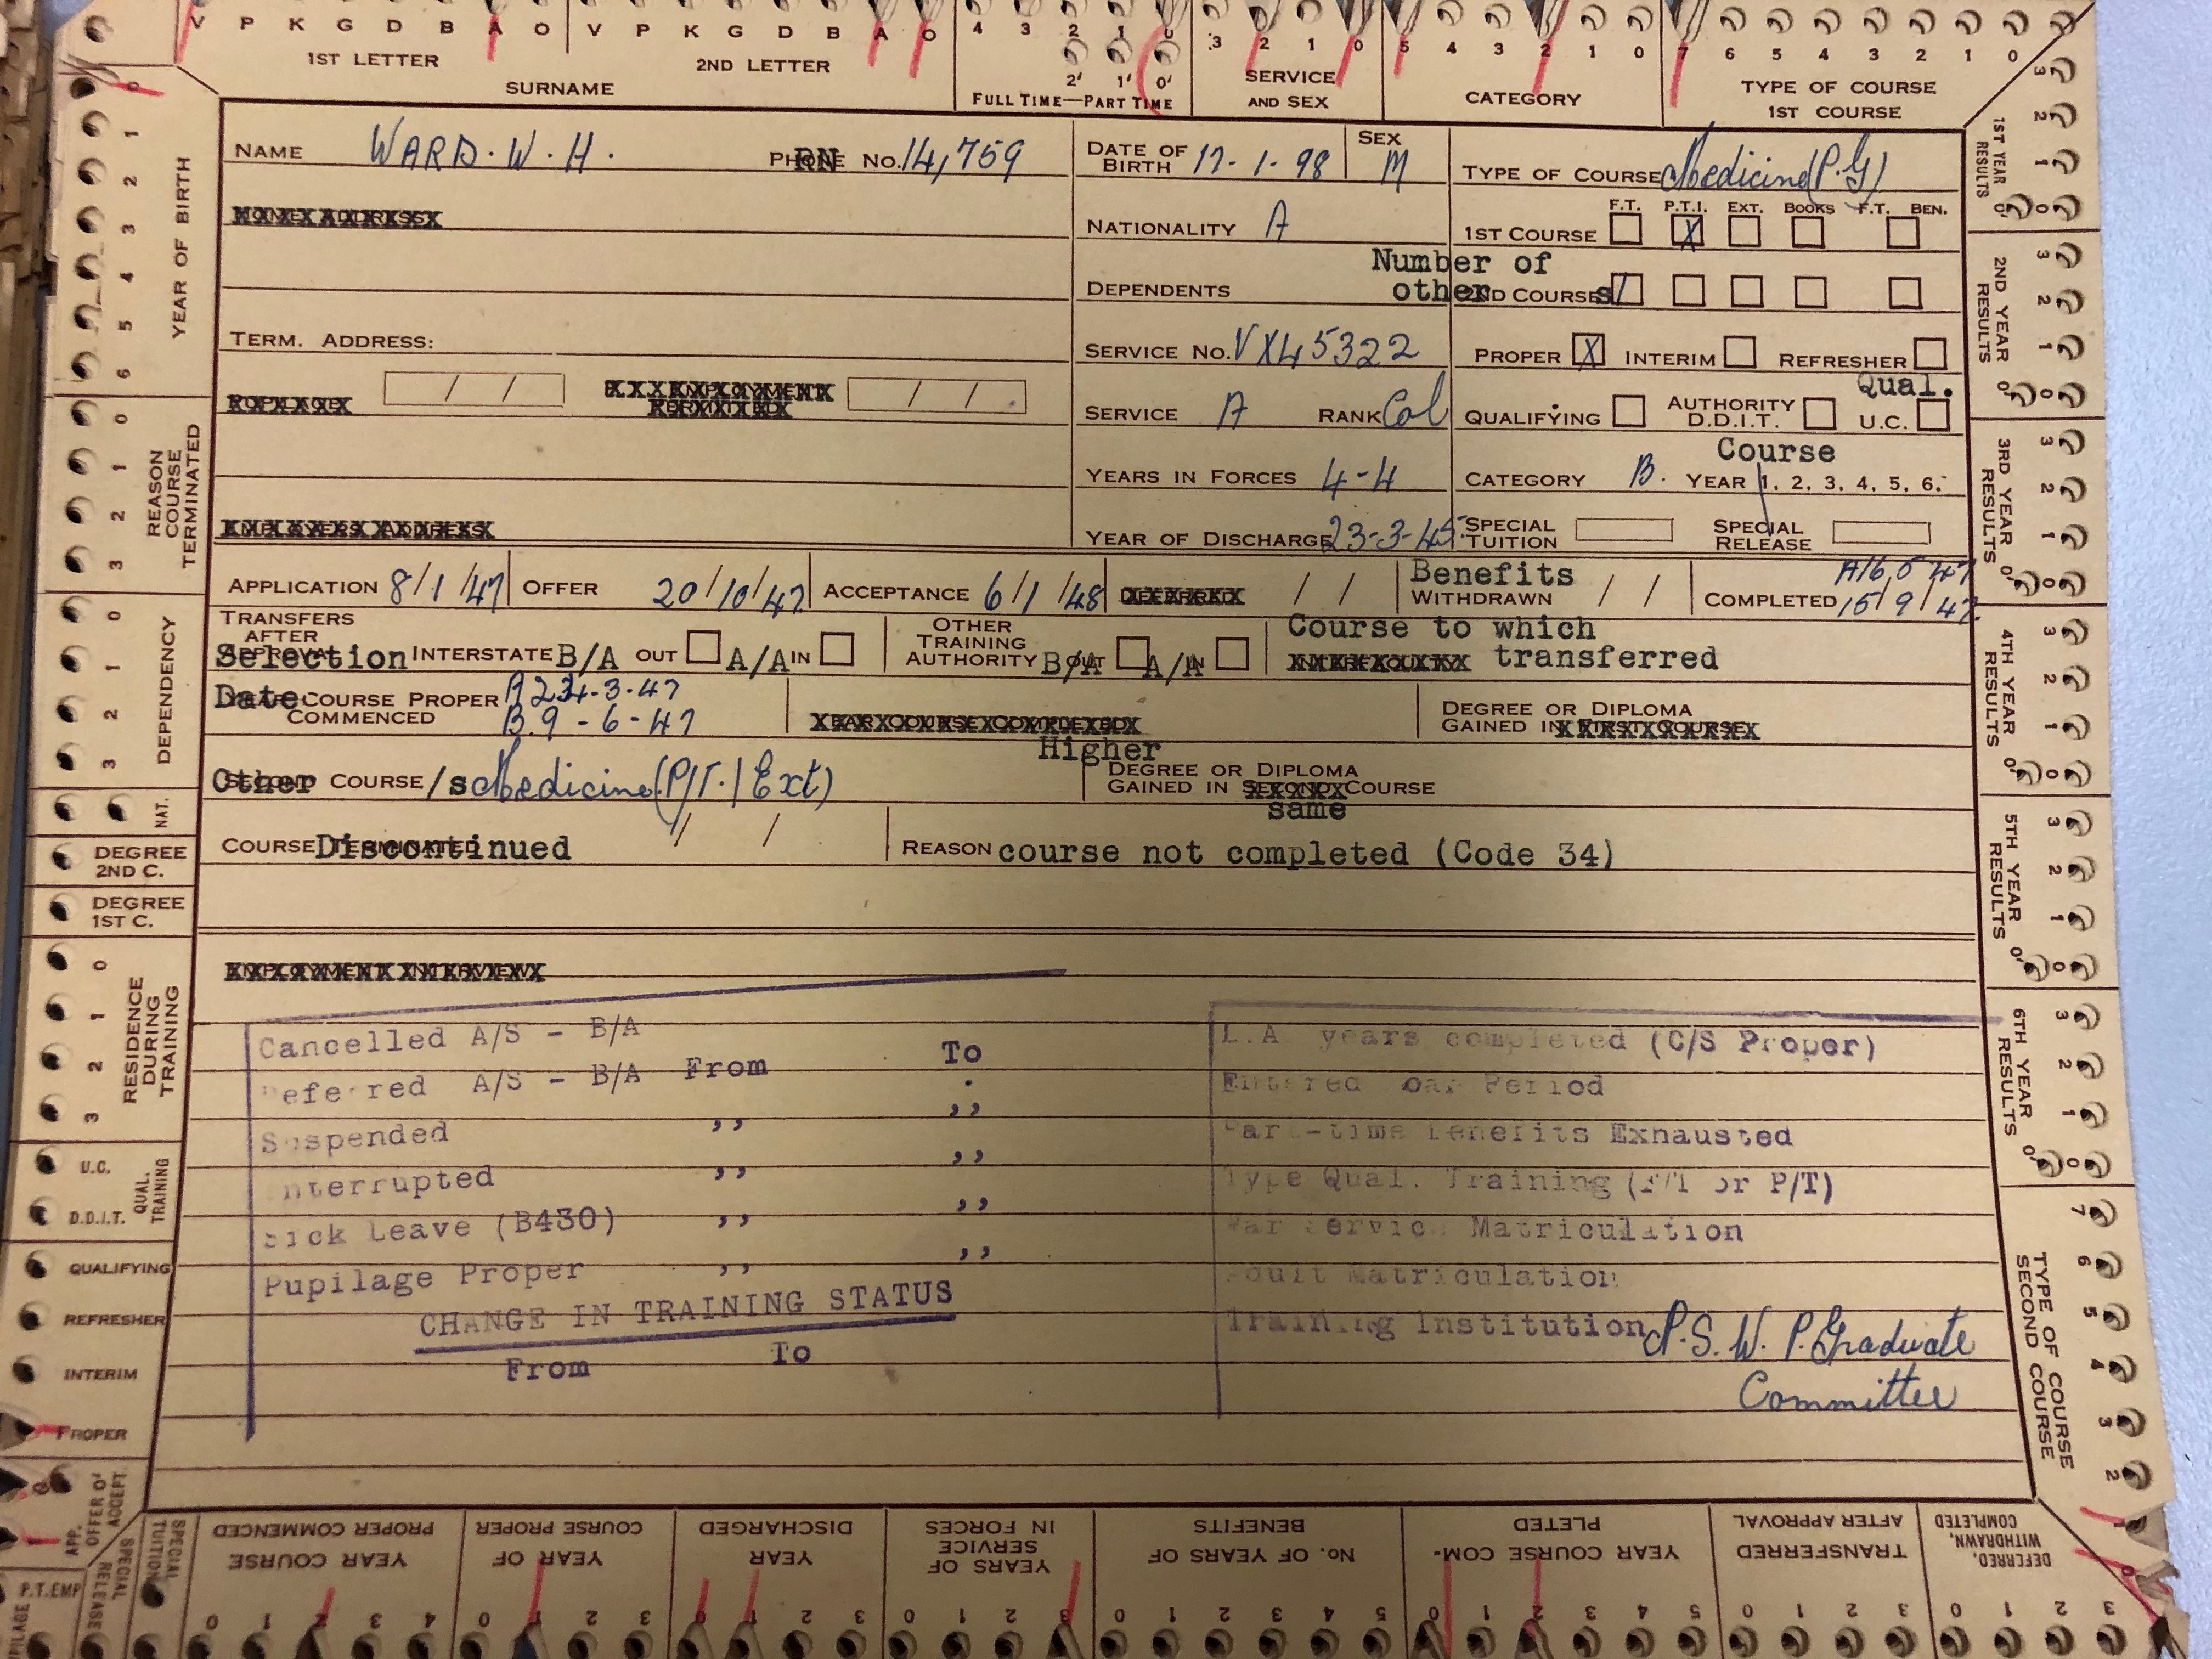 V P K G D B A O V P K G D B A O 4 3 2 1 0 3 2 1 0 5 4 3 2 1 0 7 6 5 4 3 2 1 0
2' 1' 0'
1ST LETTER 2ND LETTER
SURNAME
FULL TIME—PART TIME
SERVICE AND SEX
CATEGORY
TYPE OF COURSE
1ST COURSE
NAME WARD. W. H. PHONE RN No. 14,759
DATE OF BIRTH 17-1-98
SEX M
TYPE OF COURSE Medicine (P.G)
F.T. P.T.I. EXT. BOOKS F.T. BEN.
NATIONALITY A
1ST COURSE X
Number of
DEPENDENTS other 2ND COURSE s/
TERM. ADDRESS:
SERVICE No. VX45322
PROPER X INTERIM REFRESHER
Qual.
/ / / /
SERVICE A RANK Col
QUALIFYING AUTHORITY D.D.I.T. U.C.
Course
YEARS IN FORCES 4-4
CATEGORY B. YEAR 1, 2, 3, 4, 5, 6.
YEAR OF DISCHARGE 23-3-45
SPECIAL TUITION SPECIAL RELEASE
APPLICATION 8/1/47 OFFER 20/10/47 ACCEPTANCE 6/1/48 / / Benefits WITHDRAWN / / COMPLETED 15/9/47
TRANSFERS AFTER
Selection INTERSTATE B/A OUT A/A IN
OTHER TRAINING AUTHORITY B/A OUT A/A IN
Course to which
transferred
Date COURSE PROPER COMMENCED
B. 9-6-47
DEGREE OR DIPLOMA
GAINED IN FIRST COURSE
Higher
Other COURSE/s Medicine (P/T. / Ext)
DEGREE OR DIPLOMA
GAINED IN SECOND COURSE
same
COURSE Discontinued / /
REASON course not completed (Code 34)
Cancelled A/S - B/A
Deferred A/S - B/A From To
Suspended ,, ,,
Interrupted ,, ,,
Sick Leave (B430) ,, ,,
Pupilage Proper ,, ,,
CHANGE IN TRAINING STATUS
From To
L.A years completed (C/S Proper)
Entered Loan Period
Part-time Benefits Exhausted
Type Qual. Training (F/T or P/T)
War Service Matriculation
Adult Matriculation
Training Institution P.S.W. P.Graduate
Committee
YEAR OF BIRTH
0 1 2 3 4 5 6
REASON COURSE TERMINATED
0 1 2 3
DEPENDENCY
0 1 2 3
NAT.
DEGREE 2ND C.
DEGREE 1ST C.
RESIDENCE DURING TRAINING
0 1 2 3
U.C.
D.D.I.T.
QUAL. TRAINING
QUALIFYING
REFRESHER
INTERIM
PROPER
APP.
OFFER OF ACCEPT.
SPECIAL RELEASE
SPECIAL TUITION
P.T.EMP
1ST YEAR RESULTS
3 2 1 0 0'
2ND YEAR RESULTS
3 2 1 0 0'
3RD YEAR RESULTS
3 2 1 0 0'
4TH YEAR RESULTS
3 2 1 0 0'
5TH YEAR RESULTS
3 2 1 0 0'
6TH YEAR RESULTS
3 2 1 0 0'
TYPE OF COURSE
SECOND COURSE
7 6 5 4 3 2
YEAR COURSE PROPER COMMENCED
0 1 2 3 4
YEAR OF COURSE PROPER
0 1 2 3
YEAR DISCHARGED
0 1 2 3
YEARS OF SERVICE IN FORCES
0 1 2 3
No. OF YEARS OF BENEFITS
0 1 2 3 4 5
YEAR COURSE COM-PLETED
0 1 2 3 4 5
TRANSFERRED AFTER APPROVAL
0 1 2 3
DEFERRED, WITHDRAWN, COMPLETED
0 1 2 3